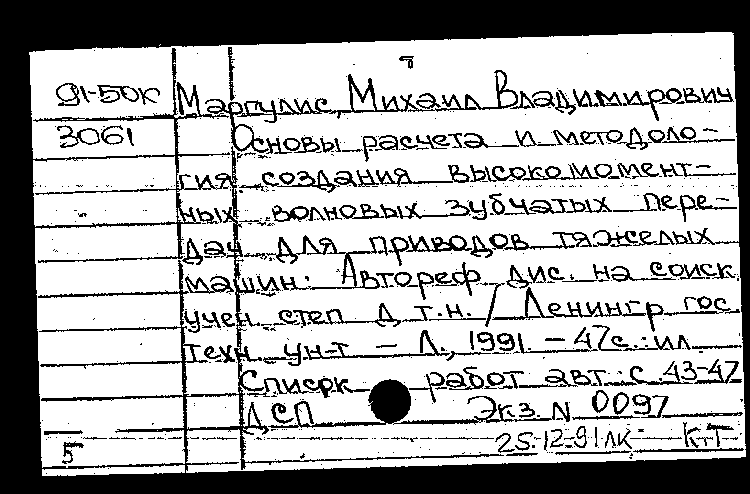 91-50К Маргулис, Михаил Владимирович
3061 Основы расчета и методоло-
гия создания высокомомент-
ных волновых зубчатых пере-
дач для приводов тяжелых
машин: Автореф дис. на соиск
учен степ д т.н. / Ленингр гос
техн ун-т – Л., 1991 – 47с.: ил
Список работ авт: с 43-47
ДСП Экз. N 0097
5 25.12.91лк КтТ